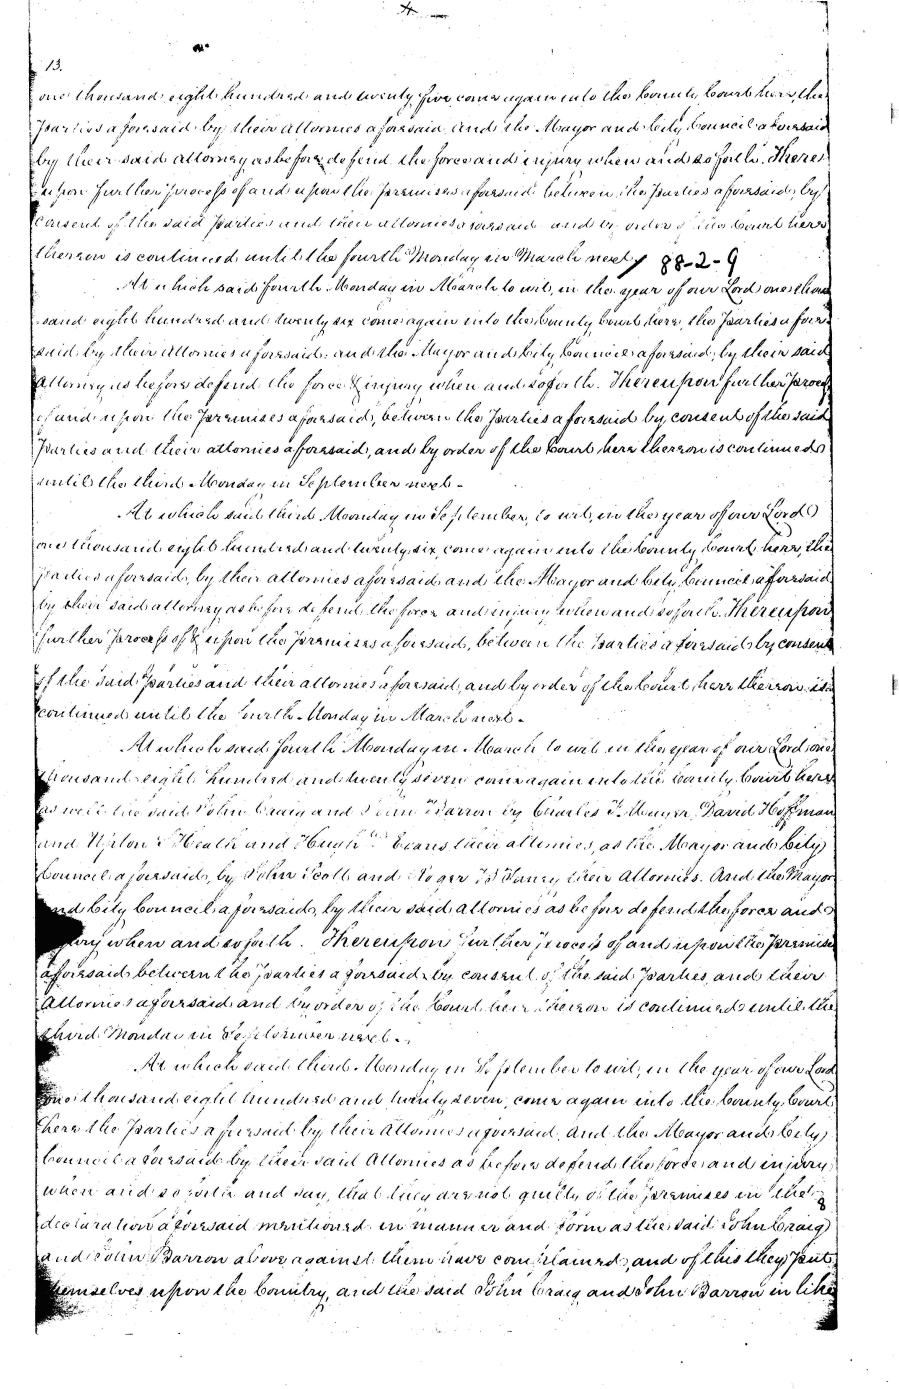 4
13.
one thousand eight hundred and twenty five come again into the County Court here, the
Parties aforesaid by their attornies aforesaid, and the Mayor and City Council aforesaid
by their said attorney, as before, defend the force and injury when and so forth. There=
upon further process of and upon the premises aforesaid between the Parties aforesaid, by
consent of the said parties and their attornies aforesaid and by order of the Court here
thereon is continued until the fourth Monday in March next, 88-2-9
At which said fourth Monday in March to wit, in the year of our Lord one thou
sand eight hundred and twenty six come again into the County Court here, the Parties afore=
said by their Attornies aforesaid, and the Mayor and City Council aforesaid, by their said
Attorney as before defend the force & injury when and so forth. Thereupon further process
of and upon the Premises aforesaid, between the Parties aforesaid by consent of the said
Parties and their attornies aforesaid, and by order of the Court here thereon is continued
until the third Monday in September next -
At which said third Monday in September, to wit, in the year of our Lord
one thousand eight hundred and twenty six, come again into the County Court here, the
parties aforesaid, by their attornies aforesaid and the Mayor and City Council aforesaid
by their said attorney as before defend the force and injury when and so forth. Thereupon
further process of & upon the premises aforesaid, between the Parties aforesaid by consent
of the said Parties and their attornies aforesaid, and by order of the Court here thereon is
continued until the fourth Monday in March next -
At which said fourth Monday in March to wit in the year of our Lord one
thousand eight hundred and twenty seven come again into the County Court here
as well the said John Craig and John Barron by Charles F. Mayer, David Hoffman
and Upton S Heath and Hugh Evans their attornies, as the Mayor and City
Council aforesaid, by John Scott and Roger B Taney their Attornies. And the Mayor
and City Council aforesaid, by their said attornies as before defend the force and
injury when and so forth. Thereupon further process of and upon the premises
aforesaid between the Parties aforesaid by consent of the said Parties, and their
Attornies aforesaid and by order of the Court here thereon is continued until the
third Monday in September next -
At which said third Monday in September to wit, in the year of our Lord
one thousand eight hundred and twenty seven, come again into the County Court
here the Parties aforesaid by their Attornies aforesaid. And the Mayor and City
Council aforesaid by their said Attornies as before defend the force and injury
when and so forth and say, that they are not guilty of the premises in the
8
declaration aforesaid mentioned in manner and form as the said John Craig
and John Barron above against them have complained, and of this they put
themselves upon the Country, and the said John Craig and John Barron in like